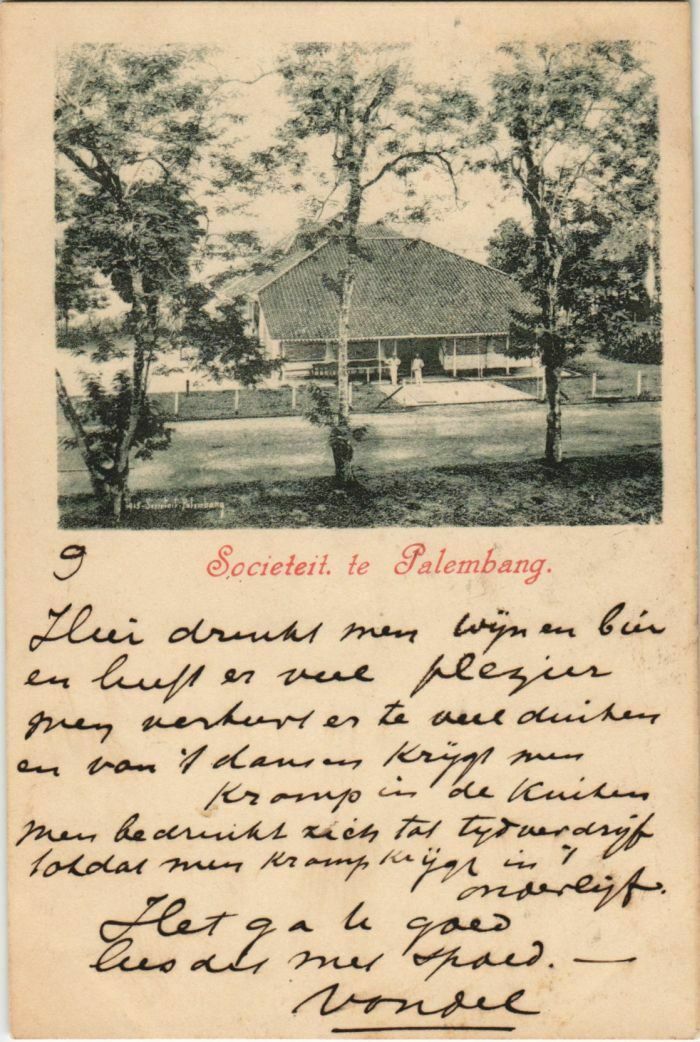 418 - Societeit - Palembang
9
Societeit. te Palembang.
Hier drinkt men wijn en bier
en heeft er veel plezier
men verkeert er te veel duiten
en van 't dansen krijgt men
kramp in de kuiten
men bedrinkt zich tot tydverdrijf
totdat men kramp krijgt in 't
onderlijf.
Het ga U goed
lees dit met spoed. —
Vondel